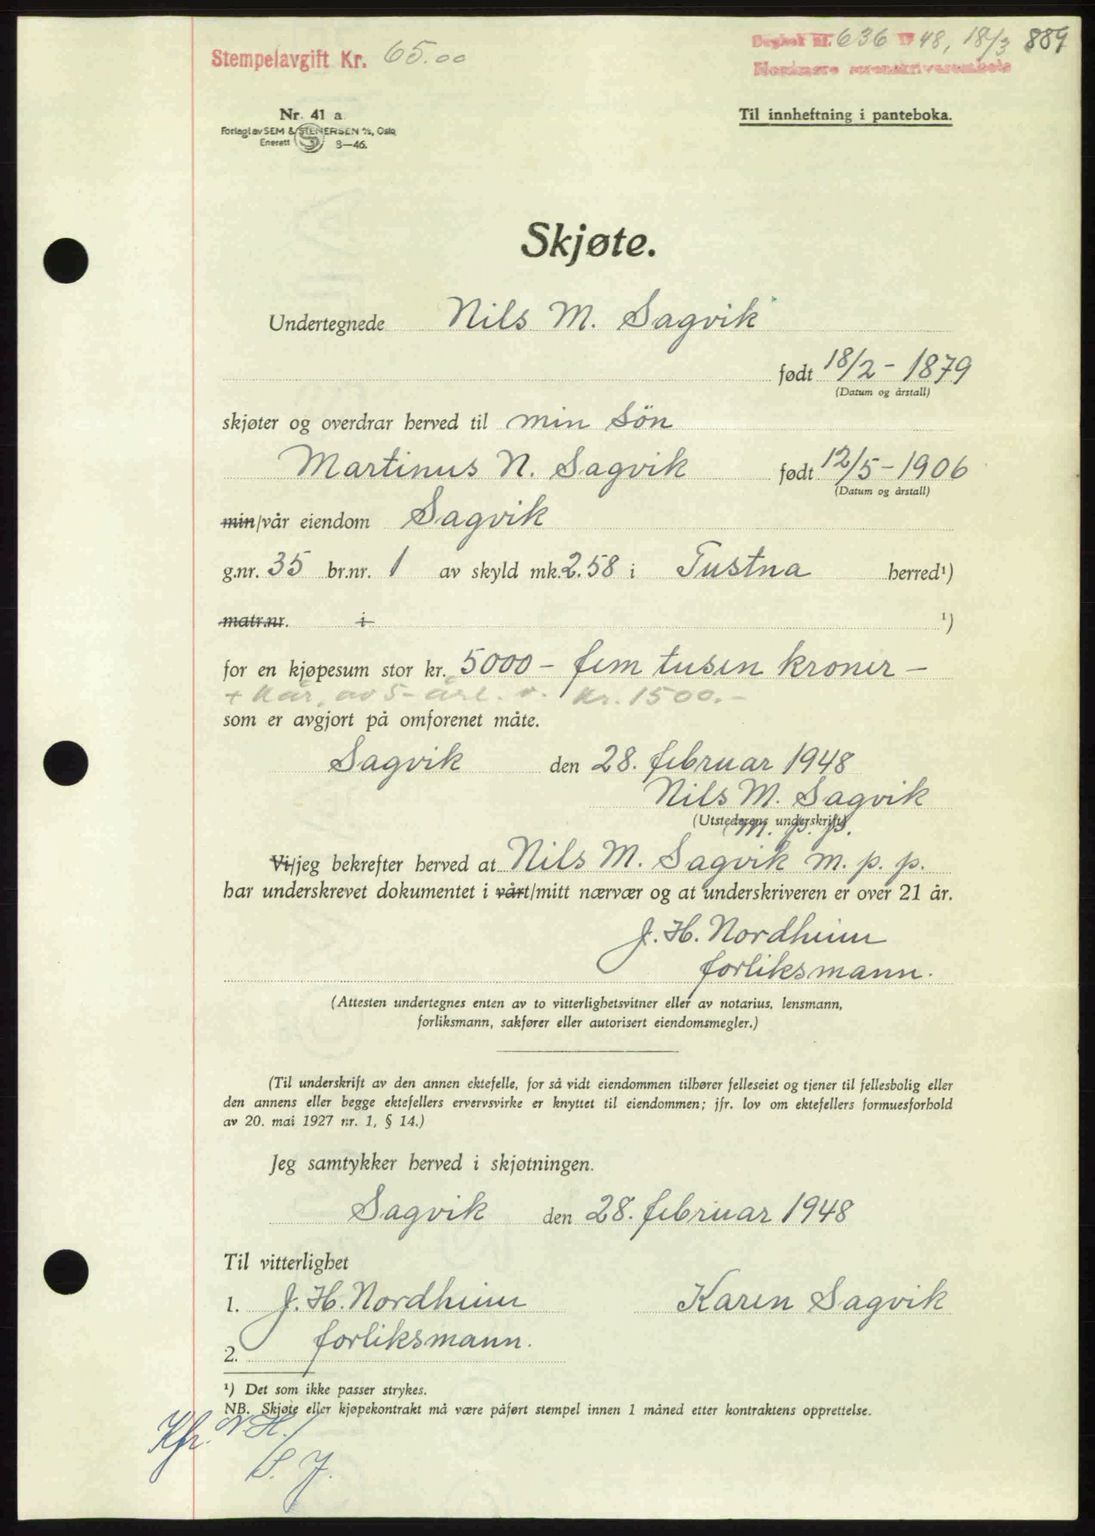 Stempelavgift Kr. 65.00
Dagbok nr. 636 1948, 18/3 889
Nordmøre sorenskriverembete
Nr. 41 a
Forlagt av SEM & STENERSEN A/S, Oslo
Enerett 8—46.
Til innheftning i panteboka.
Skjøte.
Undertegnede Nils M. Sagvik
født 18/2 - 1879
(Datum og årstall)
skjøter og overdrar herved til min sön
Martinus N. Sagvik født 12/5 - 1906
(Datum og årstall)
min/vår eiendom Sagvik
g.nr. 35 br.nr. 1 av skyld mk. 2.58 i Tustna herred¹)
matr.nr. i ¹)
for en kjøpesum stor kr. 5000 – fem tusen kroner –
+ Kår, av 5-årl. v. kr. 1500.-
som er avgjort på omforenet måte.
Sagvik den 28. februar 1948
Nils M. Sagvik
(Utstederens underskrift)
(m. p. p.
Vi/jeg bekrefter herved at Nils M. Sagvik m. p. p.
har underskrevet dokumentet i vårt/mitt nærvær og at underskriveren er over 21 år.
J. H. Nordheim
forliksmann.
(Attesten undertegnes enten av to vitterlighetsvitner eller av notarius, lensmann,
forliksmann, sakfører eller autorisert eiendomsmegler.)
(Til underskrift av den annen ektefelle, for så vidt eiendommen tilhører felleseiet og tjener til fellesbolig eller
den annens eller begge ektefellers ervervsvirke er knyttet til eiendommen; jfr. lov om ektefellers formuesforhold
av 20. mai 1927 nr. 1, § 14.)
Jeg samtykker herved i skjøtningen.
Sagvik den 28. februar 1948
Til vitterlighet
1. J. H. Nordheim Karen Sagvik
forliksmann.
2.
¹) Det som ikke passer strykes.
NB. Skjøte eller kjøpekontrakt må være påført stempel innen 1 måned etter kontraktens opprettelse.
Kfr. N H./
S. J.